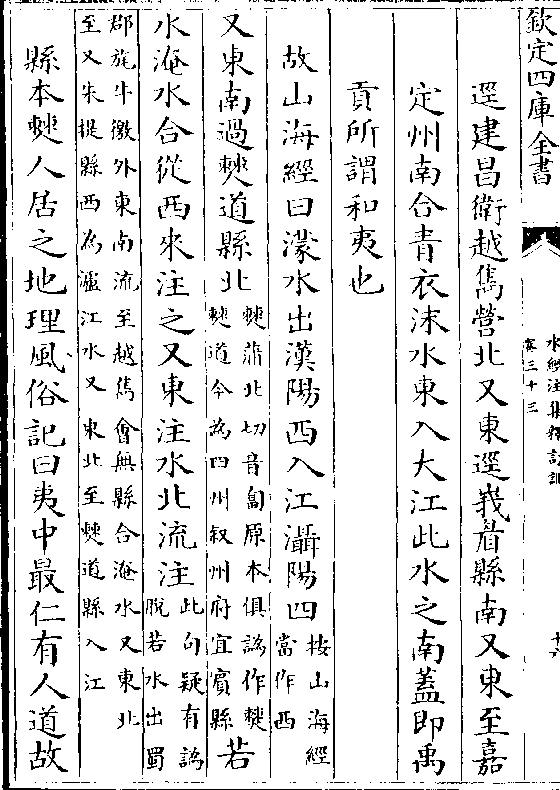 欽定四庫全書
水經注集釋訂訛
卷三十三
逕建昌衛越嶲營北又東逕峩眉縣南又東至嘉
定州南合青衣沬水東入大江此水之南蓋即禹
貢所謂和夷也
故山海經曰濛水出漢陽西入江灄陽四按山海經當作西
又東南過㸑道縣北㸑鼎北切音匐原本俱譌作㸑㸑道今為四川叙州府宜賓縣若
水淹水合從西來注之又東注水北流注此句疑有譌脫若水出蜀
郡旄牛徼外東南流至越嶲會無縣合淹水又東北
至又朱提縣西為瀘江水又東北至㸑道縣入江
縣本㸑人居之地理風俗記曰夷中最仁有人道故